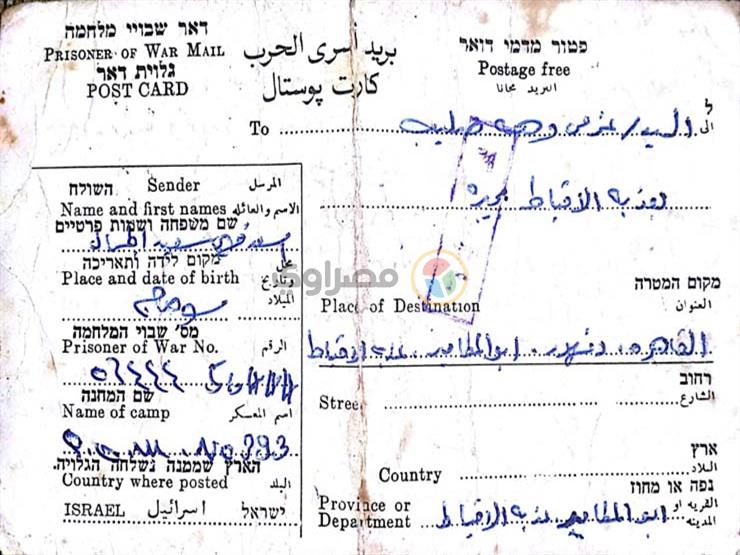 דאר שבויי מלחמה
PRISONER OF WAR MAIL
גלוית דאר
POST CARD
بريد أسرى الحرب
كارت پوستال
פטור מדמי דואר
Postage free
البريد مجانا
ל
To الى السيد/ وهبه صليب
بعزبة الاقباط
השולח Sender المرسل
Name and first names الاسم والعائلة
שם משפחה ושמות פרטיים
سعيد
מקום לידה ותאריכה
Place and date of birth محل وتاريخ الميلاد
سوهاج
מס' שבוי המלחמה
Prisoner of War No. الرقم
שם המחנה
Name of camp اسم المعسكر
No 293
הארץ שממנה נשלחה הגלויה
Country where posted البلد
ISRAEL اسرائيل ישראל
מקום המטרה
Place of Destination العنوان
القاهره . دمنهور . ابو المطامير . عزبة الاقباط
רחוב
Street الشارع
ארץ
Country البلاد
נפה או מחוז
Province or Department القريه او المدينه
ابو المطامير عزبة الاقباط
مصراوي